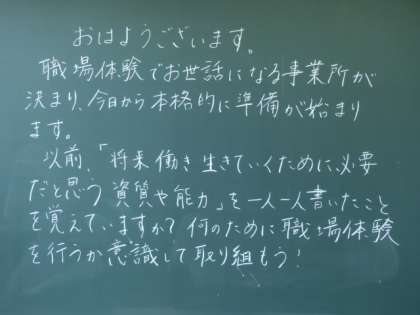 おはようございます。
職場体験でお世話になる事業所が
決まり、今日から本格的に準備が始まり
ます。
以前、「将来働き生きていくために必要
だと思う資質や能力」を一人一人書いたこと
を覚えていますか？何のために職場体験
を行うか意識して取り組もう！